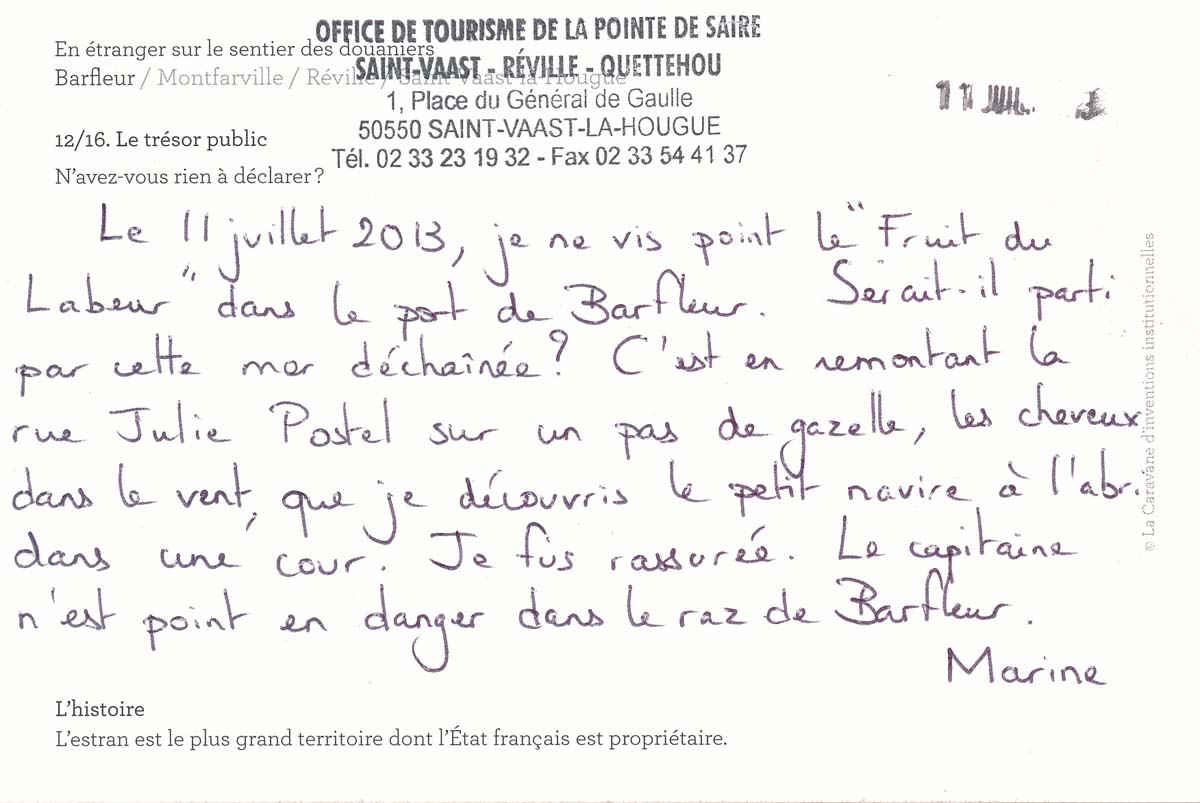 OFFICE DE TOURISME DE LA POINTE DE SAIRE
En étranger sur le sentier des douaniers
SAINT-VAAST - RÉVILLE - QUETTEHOU
Barfleur / Montfarville / Réville / Saint-Vaast-la-Hougue
1, Place du Général de Gaulle
11 JUIL.
50550 SAINT-VAAST-LA-HOUGUE
12/16. Le trésor public
Tél. 02 33 23 19 32 - Fax 02 33 54 41 37
N'avez-vous rien à déclarer ?
Le 11 juillet 2013, je ne vis point le "Fruit du
Labeur" dans le port de Barfleur. Serait-il parti
par cette mer déchaînée ? C'est en remontant la
rue Julie Postel sur un pas de gazelle, les cheveux
dans le vent, que je découvris le petit navire à l'abri
dans une cour. Je fus rassurée. Le capitaine
n'est point en danger dans le raz de Barfleur.
Marine
L'histoire
L'estran est le plus grand territoire dont l'État français est propriétaire.
© La Caravane d'inventions institutionnelles